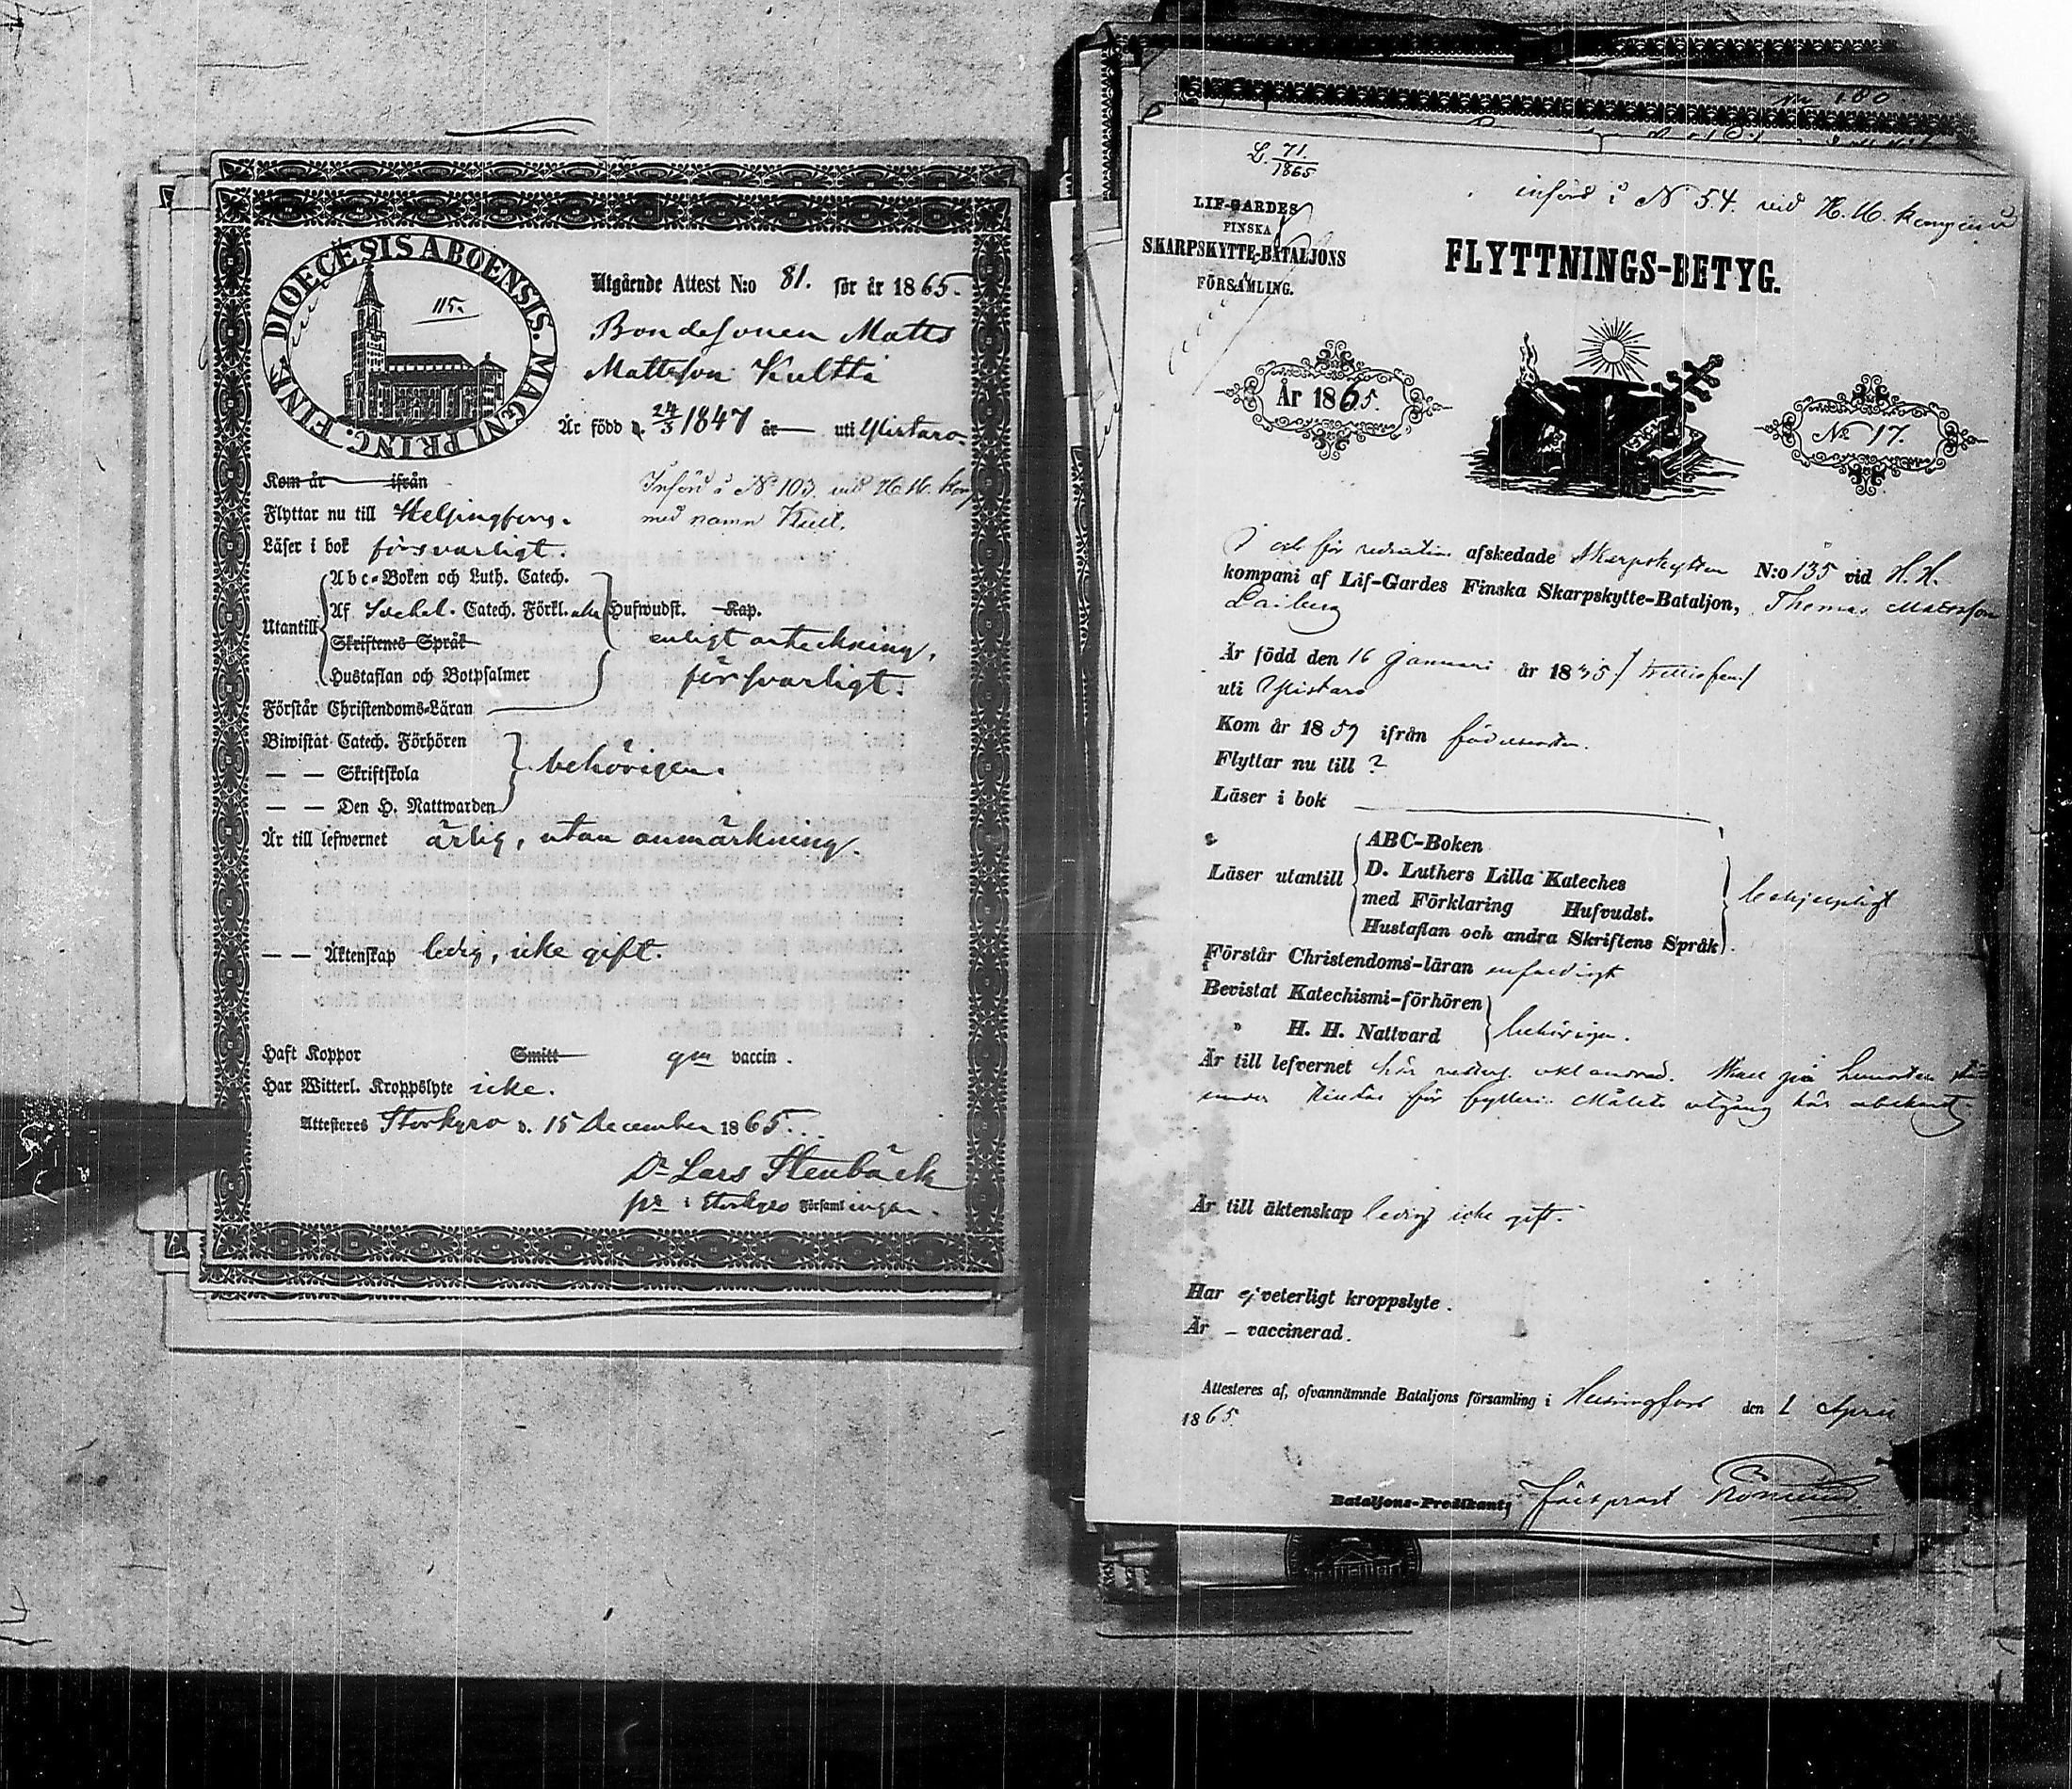 DIOECESIS ABOENSIS. MAGNI PRINC. FINL.
115.
Utgående Attest N:o 81. för år 1865.
Bondesonen Matts
Mattsson Kultti
Är född d. 24/5 1847 år — uti Ylistaro
Kom år — ifrån
Införd å No 103. vid H. M. Komp
Flyttar nu till Helsingfors.
med namn Kult.
Läser i bok försvarligt.
Utantill
Abc-Boken och Luth. Catech.
Af Svebel. Catech. Förkl. alla Hufwudst. Kap.
Skriftenes Språk
enligt anteckning,
Hustaflan och Botpsalmer
försvarligt.
Förstår Christendoms-Läran
Biwistat Catech. Förhören
— — Skriftskola
behörigen.
— — Den H. Nattwarden
Är till lefwernet ärlig, utan anmärkning.
— — Äktenskap ledig, icke gift.
Haft Koppor Smitt gm vaccin.
Har Witterl. Kroppslyte icke.
Attesteras Storkyro d. 15 December 1865.
Dr Lars Stenbäck
pr i Storkyro Församlingar.
No 180
L. 71./1865
införd i N 54. vid H. M. Kompani
LIF-GARDES
FINSKA
SKARPSKYTTE-BATALJONS
FÖRSAMLING.
FLYTTNINGS-BETYG.
År 1865.
No 17.
I och för reduction afskedade Skarpskytten N:o 135 vid H. H.
kompani af Lif-Gardes Finska Skarpskytte-Bataljon, Thomas Matsson
Laiberg
Är född den 16 Januari år 1835 / trettiofem /
uti Ylistaro
Kom år 1859 ifrån födelseorten.
Flyttar nu till ?
Läser i bok
ABC-Boken
Läser utantill
D. Luthers Lilla Kateches
med Förklaring Hufvudst.
Hustaflan och andra Skriftens Språk
behjelpligt
Förstår Christendoms-läran enfaldigt
Bevistat Katechismi-förhören
" H. H. Nattvard
behörigen.
Är till lefvernet här
för fylleri. Målets utgång här obekant.
Är till äktenskap ledig icke gift.
Har ej veterligt kroppslyte.
Är – vaccinerad.
Attesteres af, ofvannämnde Bataljons församling i Helsingfors den 1 April
1865.
Bataljons-Predikant,